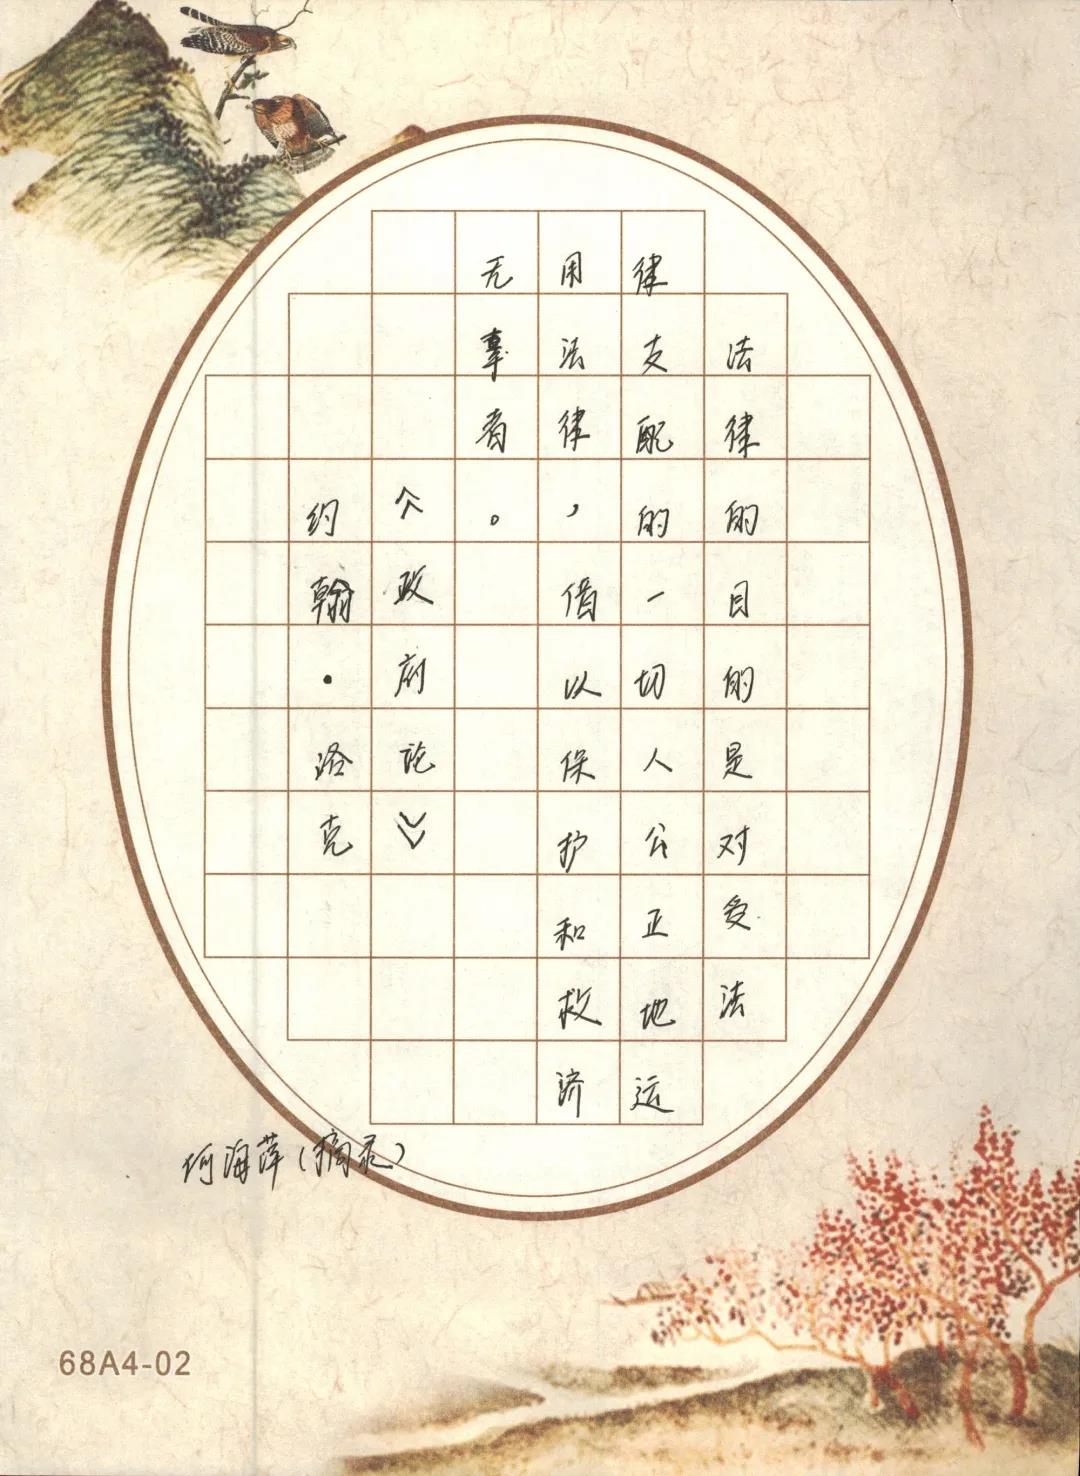 法律的目的是对受法
律支配的一切人公正地运
用法律，借以保护和救济
无辜者。
《政府论》
约翰·洛克
何海萍（摘录）
68A4-02